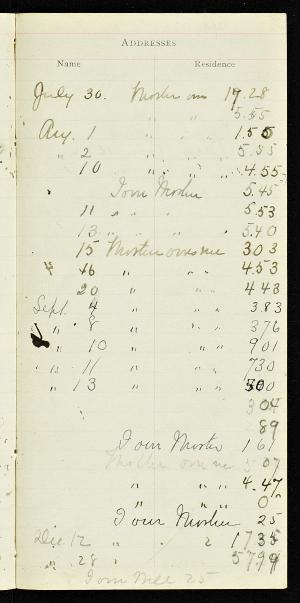 ADDRESSES
Name Residence
July 30. Moster own 19.28
5.55
Aug. 1 " " " 1.55
" 2 " " " 5.55
10 " " " 4.55
I own Moster 5.45
11 " " " 5.53
13 " " " 5.40
15 Moster owns me 303
" 16 " " " 4.53
20 " " " 443
Sept. 4 " " " 383
" 8 " " " 376
" 10 " " " 901
" 11 " " " 730
" 13 " " " 300
304
89
I own Moster 161
Moster owns me 507
" " " 4.47
" " " 0
I own Moster 25
Dec 12 " 2 1735
" 28 " 5799
I own 25